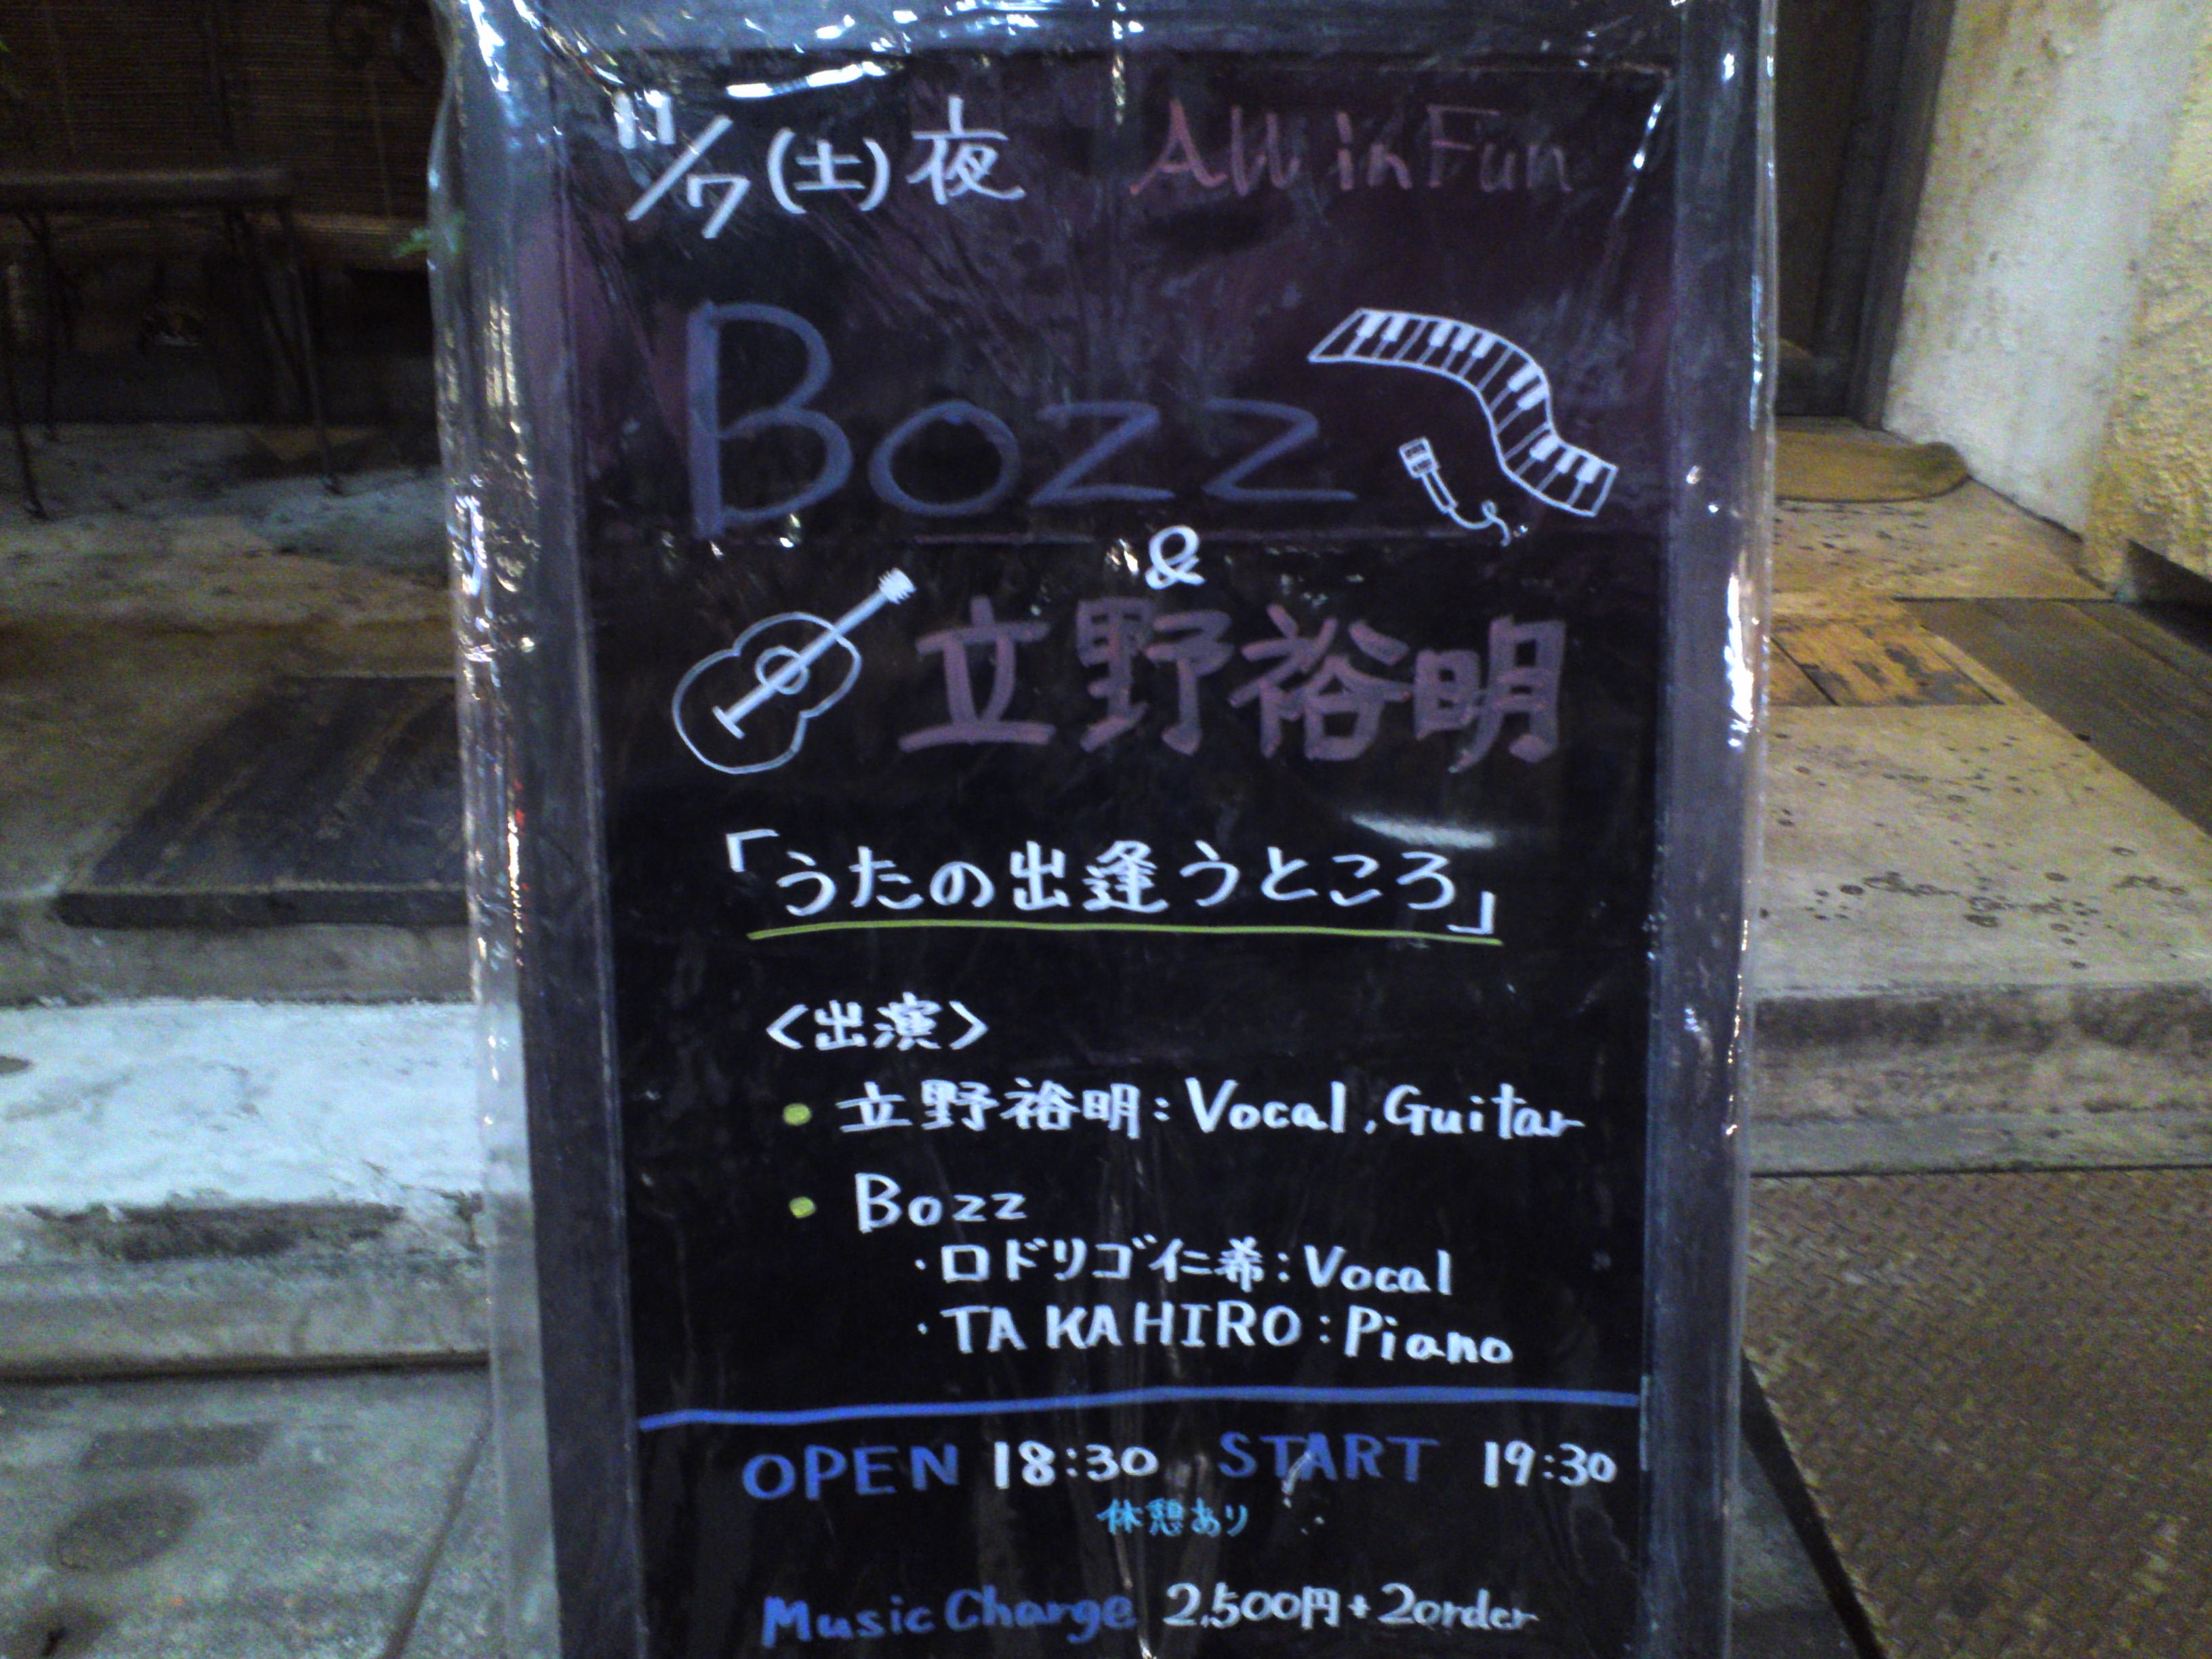 11/7(土)夜 All in Fun
Bozz
&
立野裕明
「うたの出逢うところ」
<出演>
• 立野裕明:Vocal,Guitar
• Bozz
・ロドリゴ仁希:Vocal
・TAKAHIRO:Piano
OPEN 18:30 START 19:30
休憩あり
Music Charge 2,500円+2order